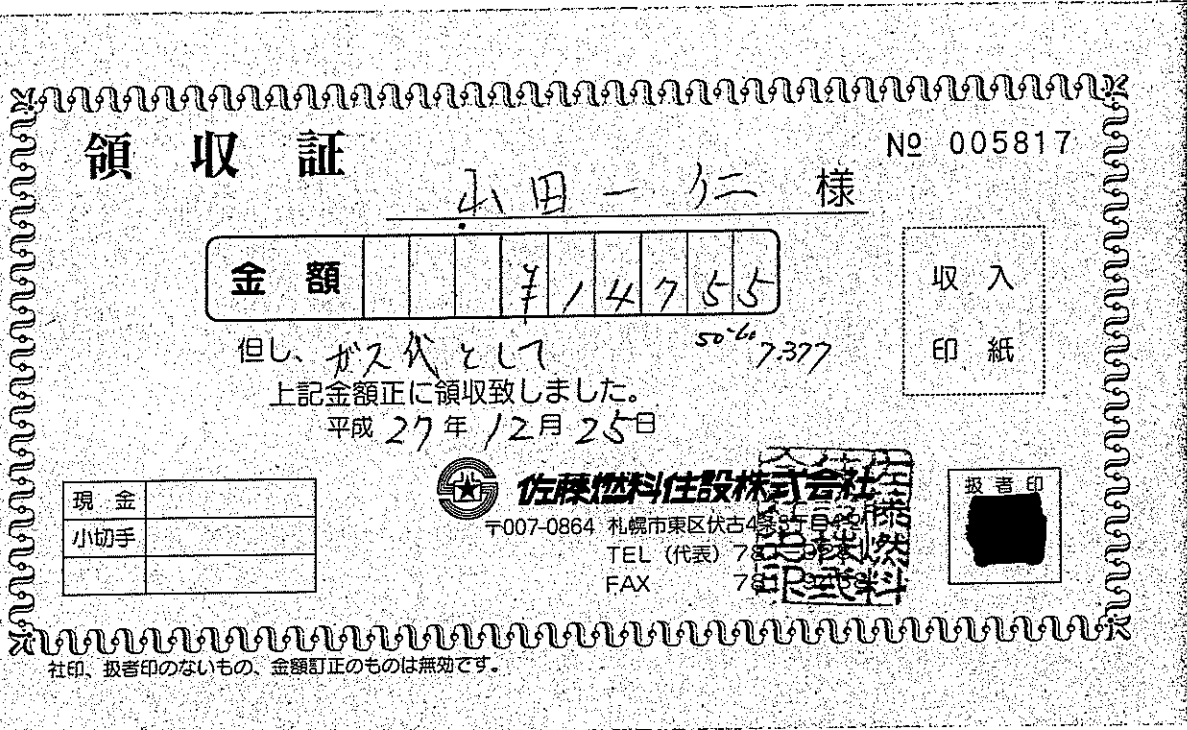 領収証
№ 005817
小田一仁 様
金額 ¥14755
但し、ガス代として
50-60 7.377
上記金額正に領収致しました。
平成27年12月25日
収入
印紙
現金
小切手
佐藤燃料住設株式会社
〒007-0864 札幌市東区伏古4条3丁目
TEL (代表) 78
FAX 78
扱者印
社印、扱者印のないもの、金額訂正のものは無効です。